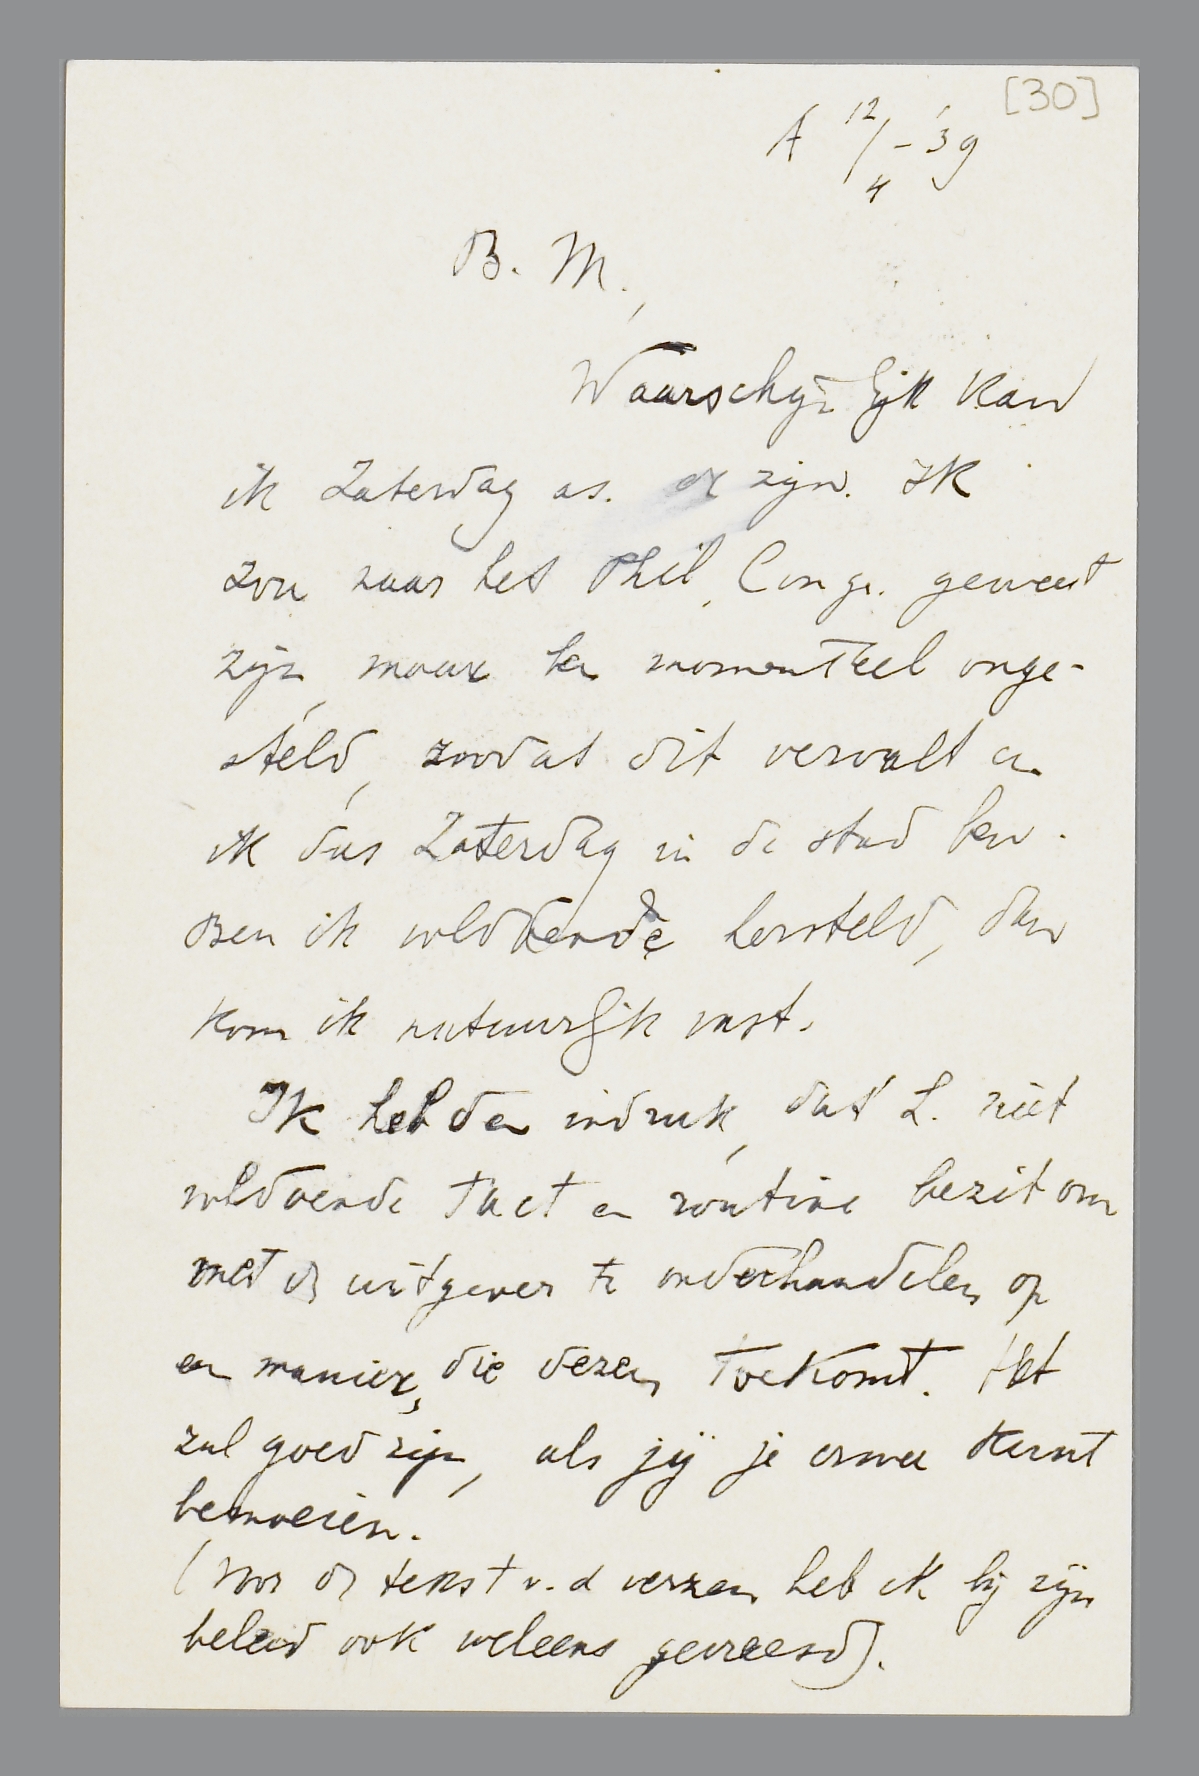 [30]
A 12/4 - '39
B. M.,
Waarschijnlijk kan
ik Zaterdag as. er zijn. Ik
zou naar het Phil. Congr. geweest
zijn, maar ben momenteel onge-
steld, zoodat dit vervalt en
ik dus Zaterdag in de stad ben.
Ben ik voldoende hersteld, dan
kom ik natuurlijk vast.
Ik heb den indruk, dat L. niet
voldoende tact en routine bezit om
met de uitgever te onderhandelen op
en manier, die dezen toekomt. Het
zal goed zijn, als jij je ermee kunt
bemoeien.
(Voor de tekst v. d verzen heb ik bij zijn
beleid ook weleens gevreesd).